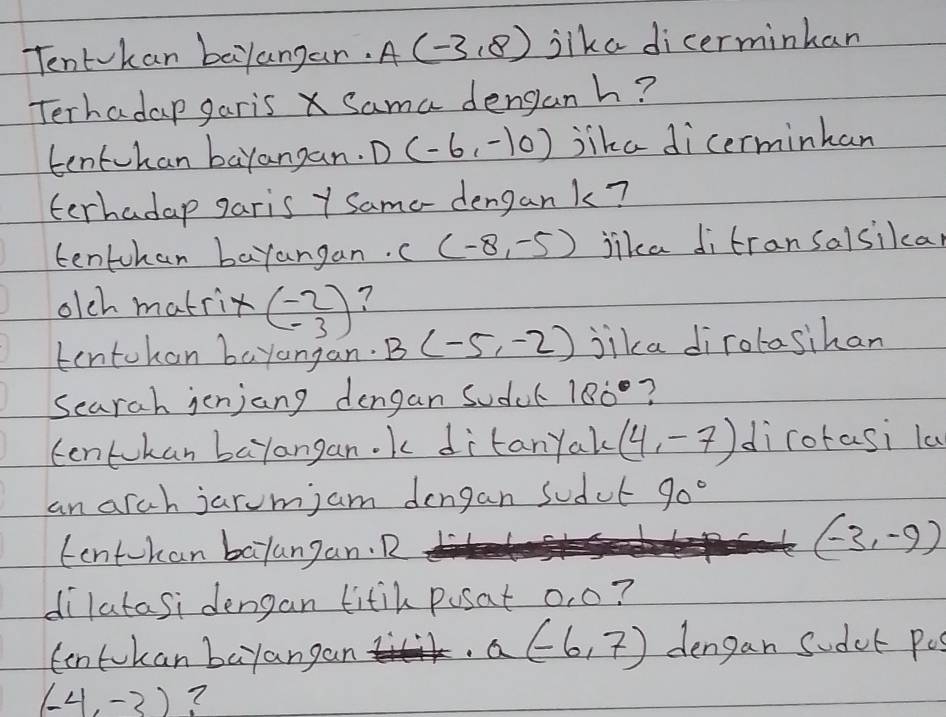 Tentukan bayangan. A (-3,8) jika dicerminkan
Terhadap garis X Sama dengan h?
tentukan bayangan. D (-6,-10) jika dicerminkan
terhadap garis Y sama dengan k?
tentukan bayangan. C (-8,-5) jika ditransalsikan
oleh matrix (-2
-3)?
tentukan bayangan. B (-5,-2) jika dirotasikan
Searah jenjang dengan sudut 180°?
tentukan bayangan. k ditanyak (4,-7) dirotasi la
an arah jarumjam dengan sudut 90°
tentukan bayangan. R (-3,-9)
dilatasi dengan titik pusat 0,0?
tentukan bayangan titik. a (-6,7) dengan sudut pus
(-4,-3)?